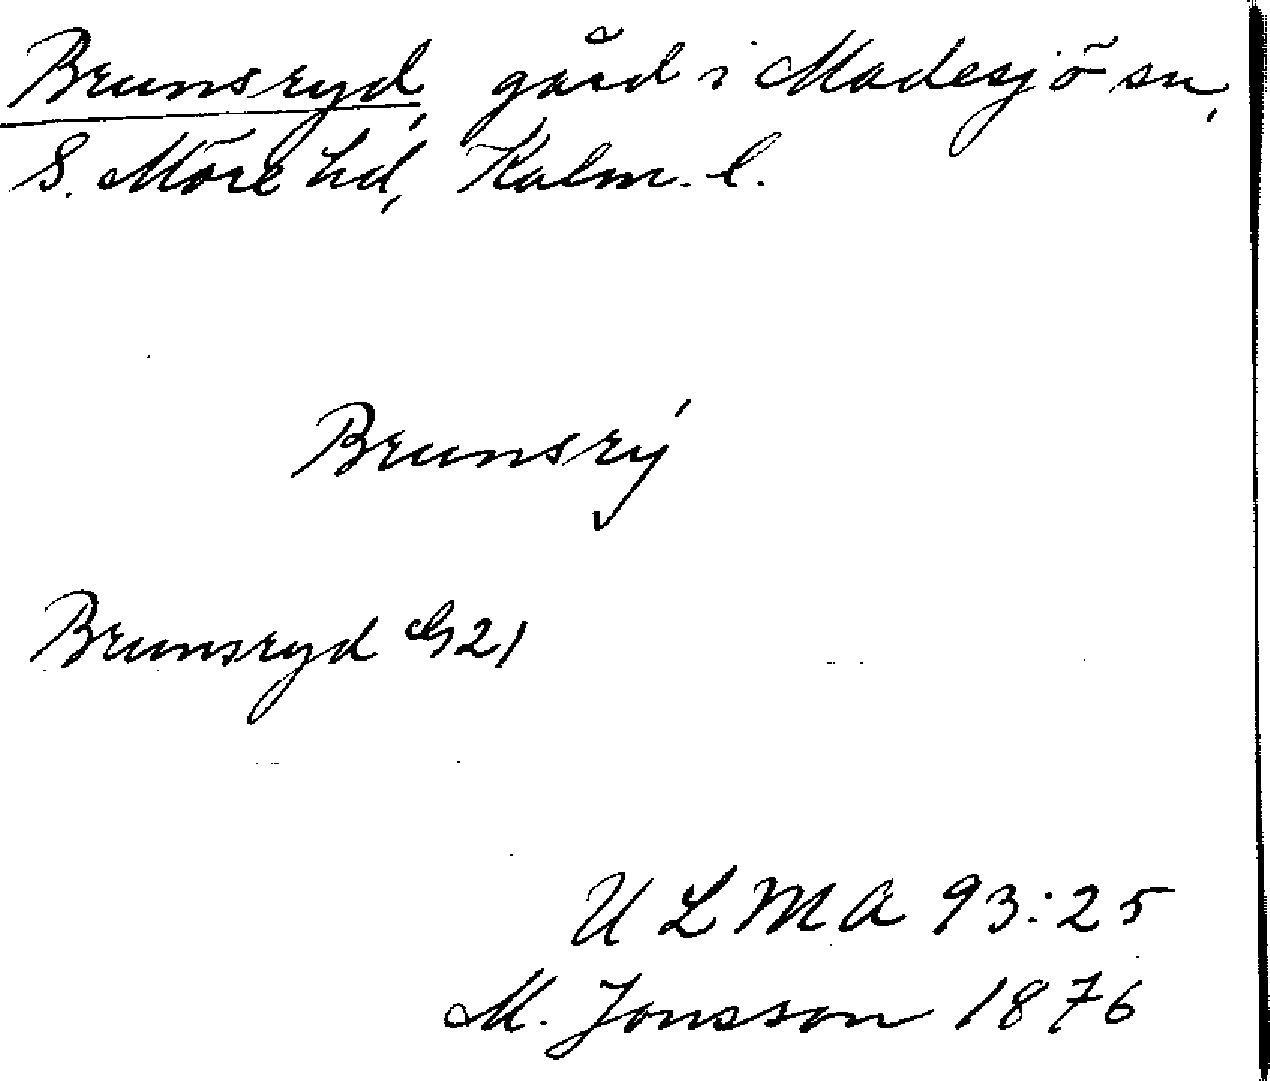 Brunsryd, gård i Madesjö sn,
S. Möre hd, Kalm. l.
Brunsrý
Brunsryd G21
ULMA 93:25
M. Jonsson 1876